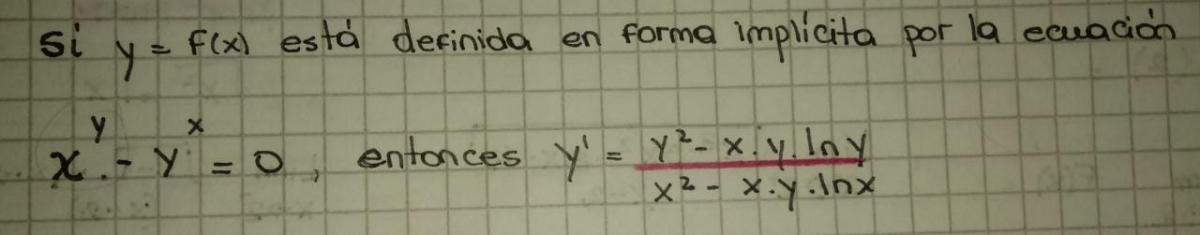 Si y = f(x) está definida en forma implícita por la ecuación
x^y - y^x = 0, entonces y' = (y² - x.y.ln y)/(x² - x.y.ln x)